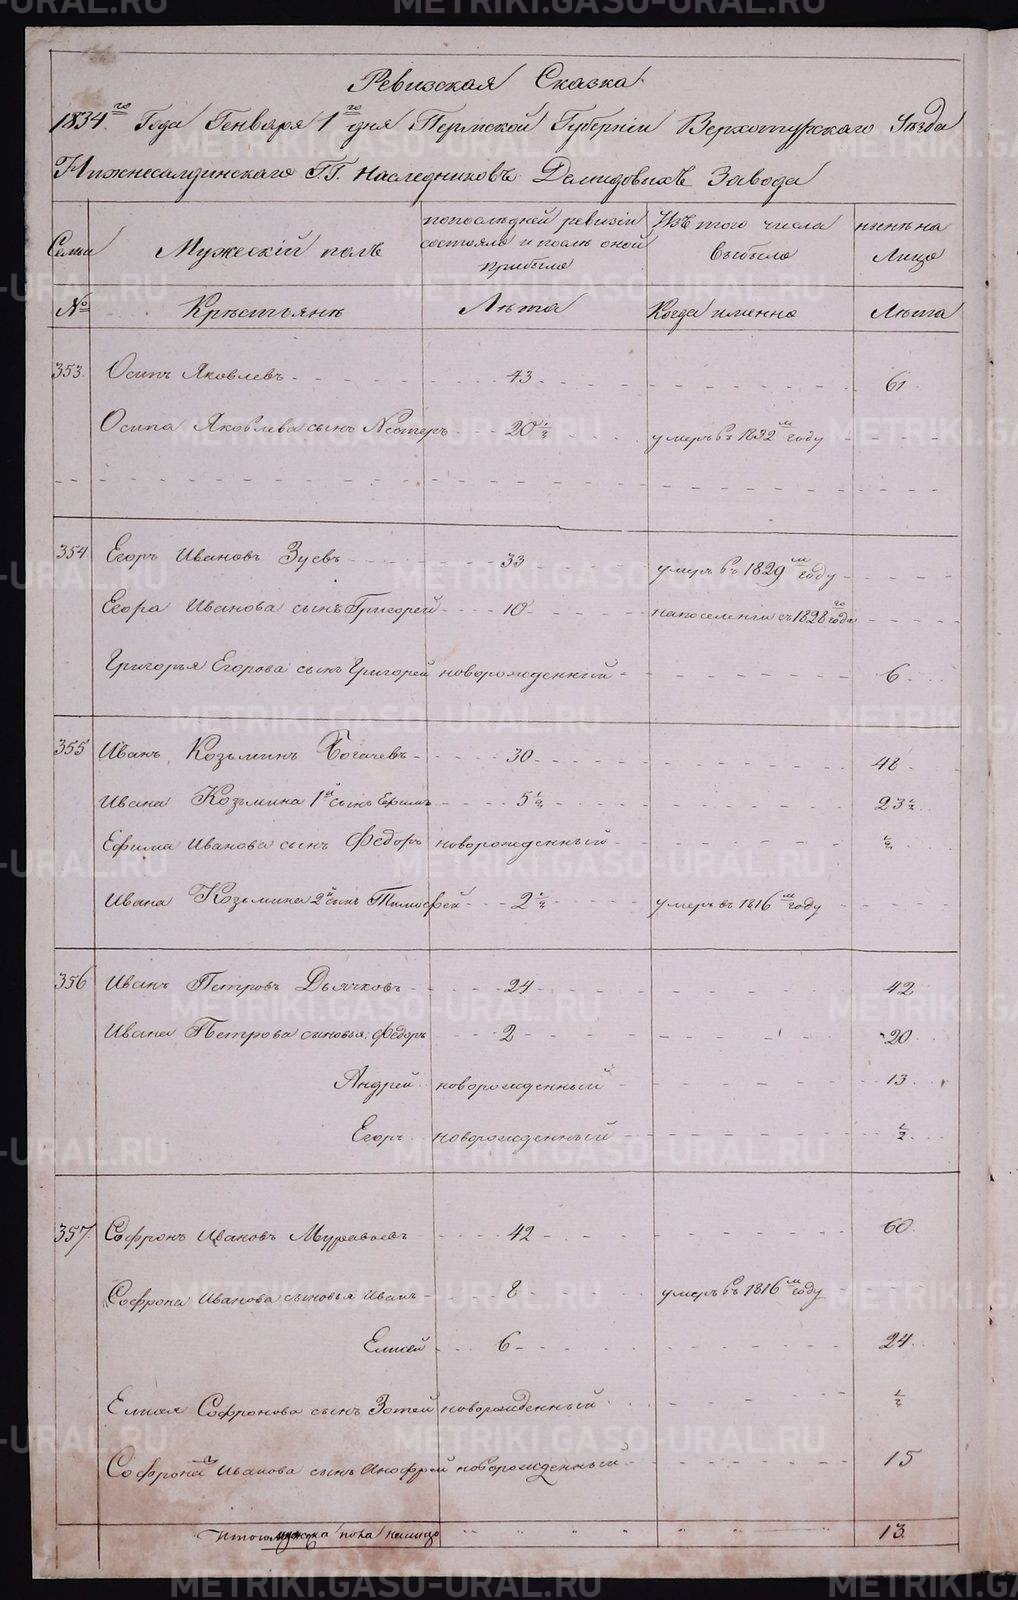 Ревизская Сказка
1834го Года Генваря 1го дня Пермской Губернiи Верхотурскаго Уѣзда
Нижнесалдинскаго Г.Г. Наследниковъ Демидовыхъ Завода
Семьи Мужескiй полъ попослѣдней ревизiи состояло и послѣ оной прибыло Изъ того числа выбыло нынѣ на Лицо
№ Крестьянѣ Лѣта Когда именно Лѣта
353. Осипъ Яковлевъ 43 61
Осипа Яковлева сынъ Нестеръ 20 1/2 умеръ въ 1832м году
354 Егоръ Ивановъ Зуевъ 33 умеръ въ 1829м году
Егора Иванова сынъ Григорей 10 напоселенiи съ 1828го года
Григорья Егорова сынъ Григорей новорожденный 6
355 Иванъ Козьминъ Богачевъ 30 48
Ивана Козьмина 1й сынъ Ефимъ 5 1/2 23 1/2
Ефима Иванова сынъ Федоръ новорожденный 1/2
Ивана Козьмина 2й сынъ Тимофей 2 1/2 умеръ въ 1816м году
356 Иванъ Петровъ Дьячковъ 24 42
Ивана Петрова сыновья: Федоръ 2 20
Андрей новорожденный 13
Егоръ новорожденный 1/2
357. Софронъ Ивановъ Муравьевъ 42 60
Софрона Иванова сыновья Иванъ 8 умеръ въ 1816м году
Елисей 6 24
Елисея Софронова сынъ Зотей новорожденный 1/2
Софрона Иванова сынъ Анофрей новорожденный 15
Итого мужска пола налицо 13.
METRIKI.GASO-URAL.RU